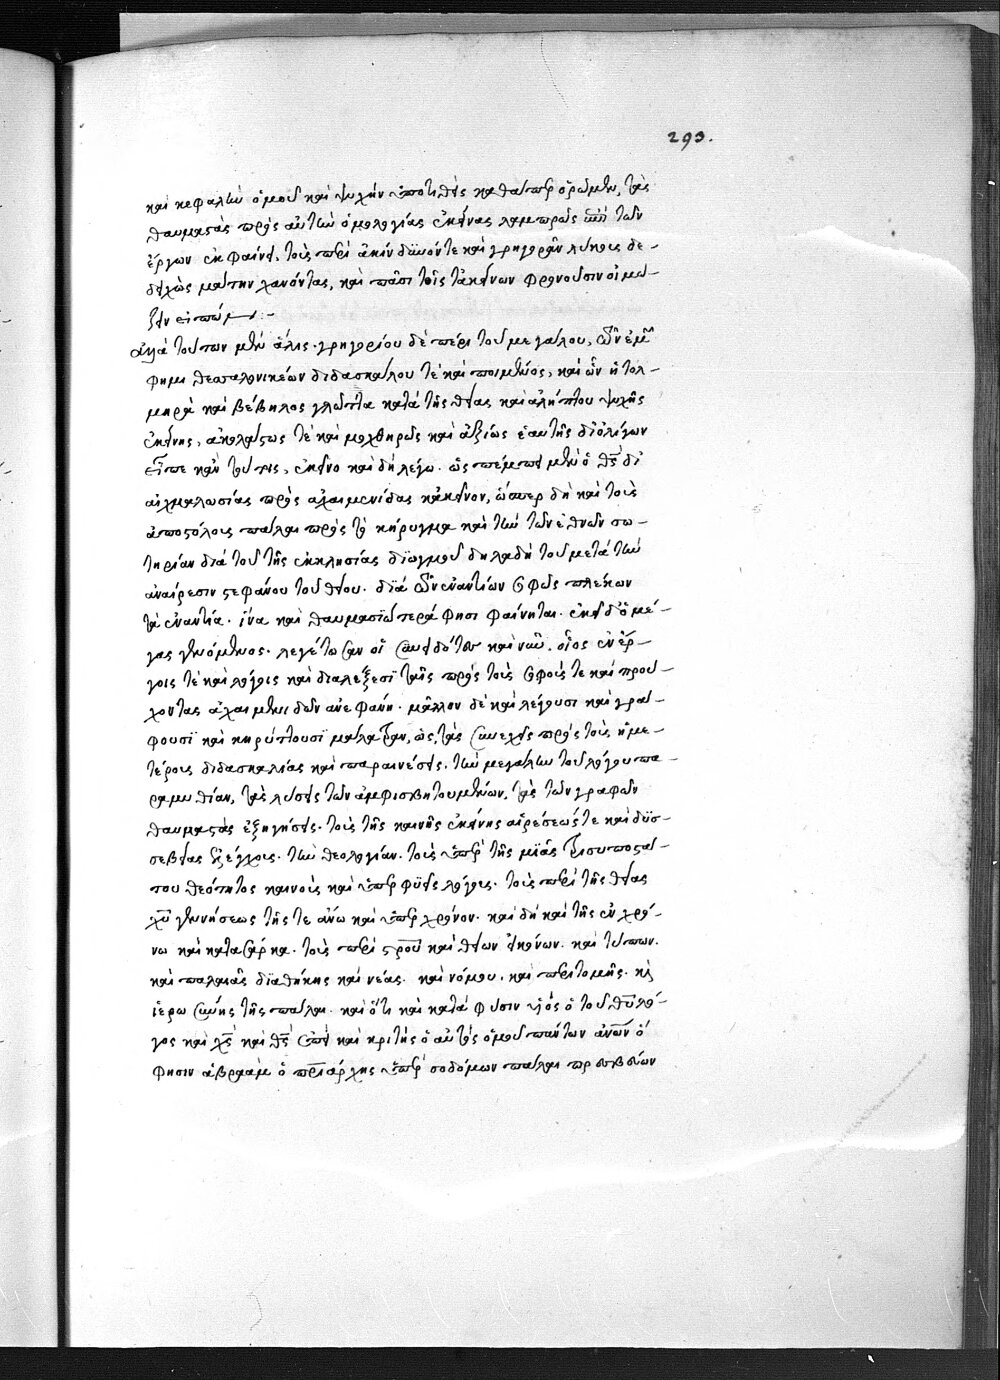 293.
καὶ κεφαλὴν ὁμοῦ καὶ ψυχὴν ὑποτιθεὶς καθάπερ ὁρῶμεν, τὰς
θαυμαστὰς πρὸς αὐτὴν ὁμολογίας ἐκείνας λαμπρῶς ἐπὶ τῶν
ἔργων ἐκφαίνει, τοὺς περὶ ἀκίνδυνόν τε καὶ γρηγορᾶν λύκους δε-
δηχὼς μάτην χανόντας, καὶ πᾶσι τοῖς τἀκείνων φρονοῦσιν οἰμώ-
ζειν εἰπών :-
ἀλλὰ τούτων μὲν ἅλις. γρηγορίου δὲ πέρι τοῦ μεγάλου, τῶν ἐμῶν
φημι θεσσαλονικέων διδασκάλου τὲ καὶ ποιμένος, καὶ ὧν ἡ τολ-
μηρὰ καὶ βέβηλος γλῶττα κατὰ τῆς θείας καὶ ἀλήπτου ψυχῆς
ἐκείνης, ἀκολάστως τὲ καὶ μοχθηρῶς καὶ ἀξίως ἑαυτῆς δι' ὀλίγων
εἶπε κἂν τούτοις, ἐκεῖνο καὶ δὴ λέγω. ὡς πέμπει μὲν ὁ θς δι'
αἰχμαλωσίας πρὸς ἀχαιμενίδας κἀκεῖνον, ὥσπερ δὴ καὶ τοὺς
ἀποστόλους πάλαι πρὸς τὸ κήρυγμα καὶ τὴν τῶν ἐθνῶν σω-
τηρίαν διὰ τοῦ τῆς ἐκκλησίας διωγμοῦ δηλαδὴ τοῦ μετὰ τὴν
ἀναίρεσιν στεφάνου τοῦ θείου. διὰ τῶν ἐναντίων σοφῶς πλέκων
τὰ ἐναντία. ἵνα καὶ θαυμασιώτερά φησι φαίνηται. ἐκεῖ δ' ὁ μέ-
γας γενόμενος. λεγέτωσαν οἱ συνειδότες καὶ νῦν. οἷος ἐν ἔρ-
γοις τὲ καὶ λόγοις καὶ διαλέξεσι ταῖς πρὸς τοὺς σοφούς τε καὶ πρού-
χοντας ἀχαιμενιδῶν ἀνεφάνη. μᾶλλον δὲ καὶ λέγουσι καὶ γρά-
φουσι καὶ κηρύττουσι μάλα τρανῶς, τὰς συνεχεῖς πρὸς τοὺς ἡμε-
τέρους διδασκαλίας καὶ παραινέσεις, τὴν μεγάλην τοῦ λόγου πα-
ραμυθίαν, τὰς λύσεις τῶν ἀμφισβητουμένων, τὰς τῶν γραφῶν
θαυμαστὰς ἐξηγήσεις. τοὺς τῆς καινῆς ἐκείνης αἱρέσεώς τε καὶ δυσ-
σεβείας ἐλέγχους. τὴν θεολογίαν. τοὺς ὑπὲρ τῆς μιᾶς τρισυποστά-
του θεότητος καινοὺς καὶ ὑπὲρ φύσεις λόγους. τοὺς περὶ τῆς θείας
χυ γεννήσεως τῆς τε ἄνω καὶ ὑπὲρ χρόνον. καὶ δὴ καὶ τῆς ἐν χρό-
νω καὶ κατὰ σάρκα. τοὺς περὶ στροῦ καὶ θείων εἰκόνων. καὶ τύπων.
καὶ παλαιᾶς διαθήκης καὶ νέας. καὶ νόμου. καὶ περιτομῆς. κὶ
ἱερωσύνης τῆς πάλαι. καὶ ὅτι καὶ κατὰ φύσιν υἱὸς ὁ τοῦ θυ λό-
γος καὶ χς καὶ θς ἐστὶ καὶ κριτὴς ὁ αὐτὸς ὁμοῦ πάντων ἀνων ὅ
φησιν ἀβραὰμ ὁ πριάρχης ὑπὲρ σοδόμων πάλαι πρεσβεύων